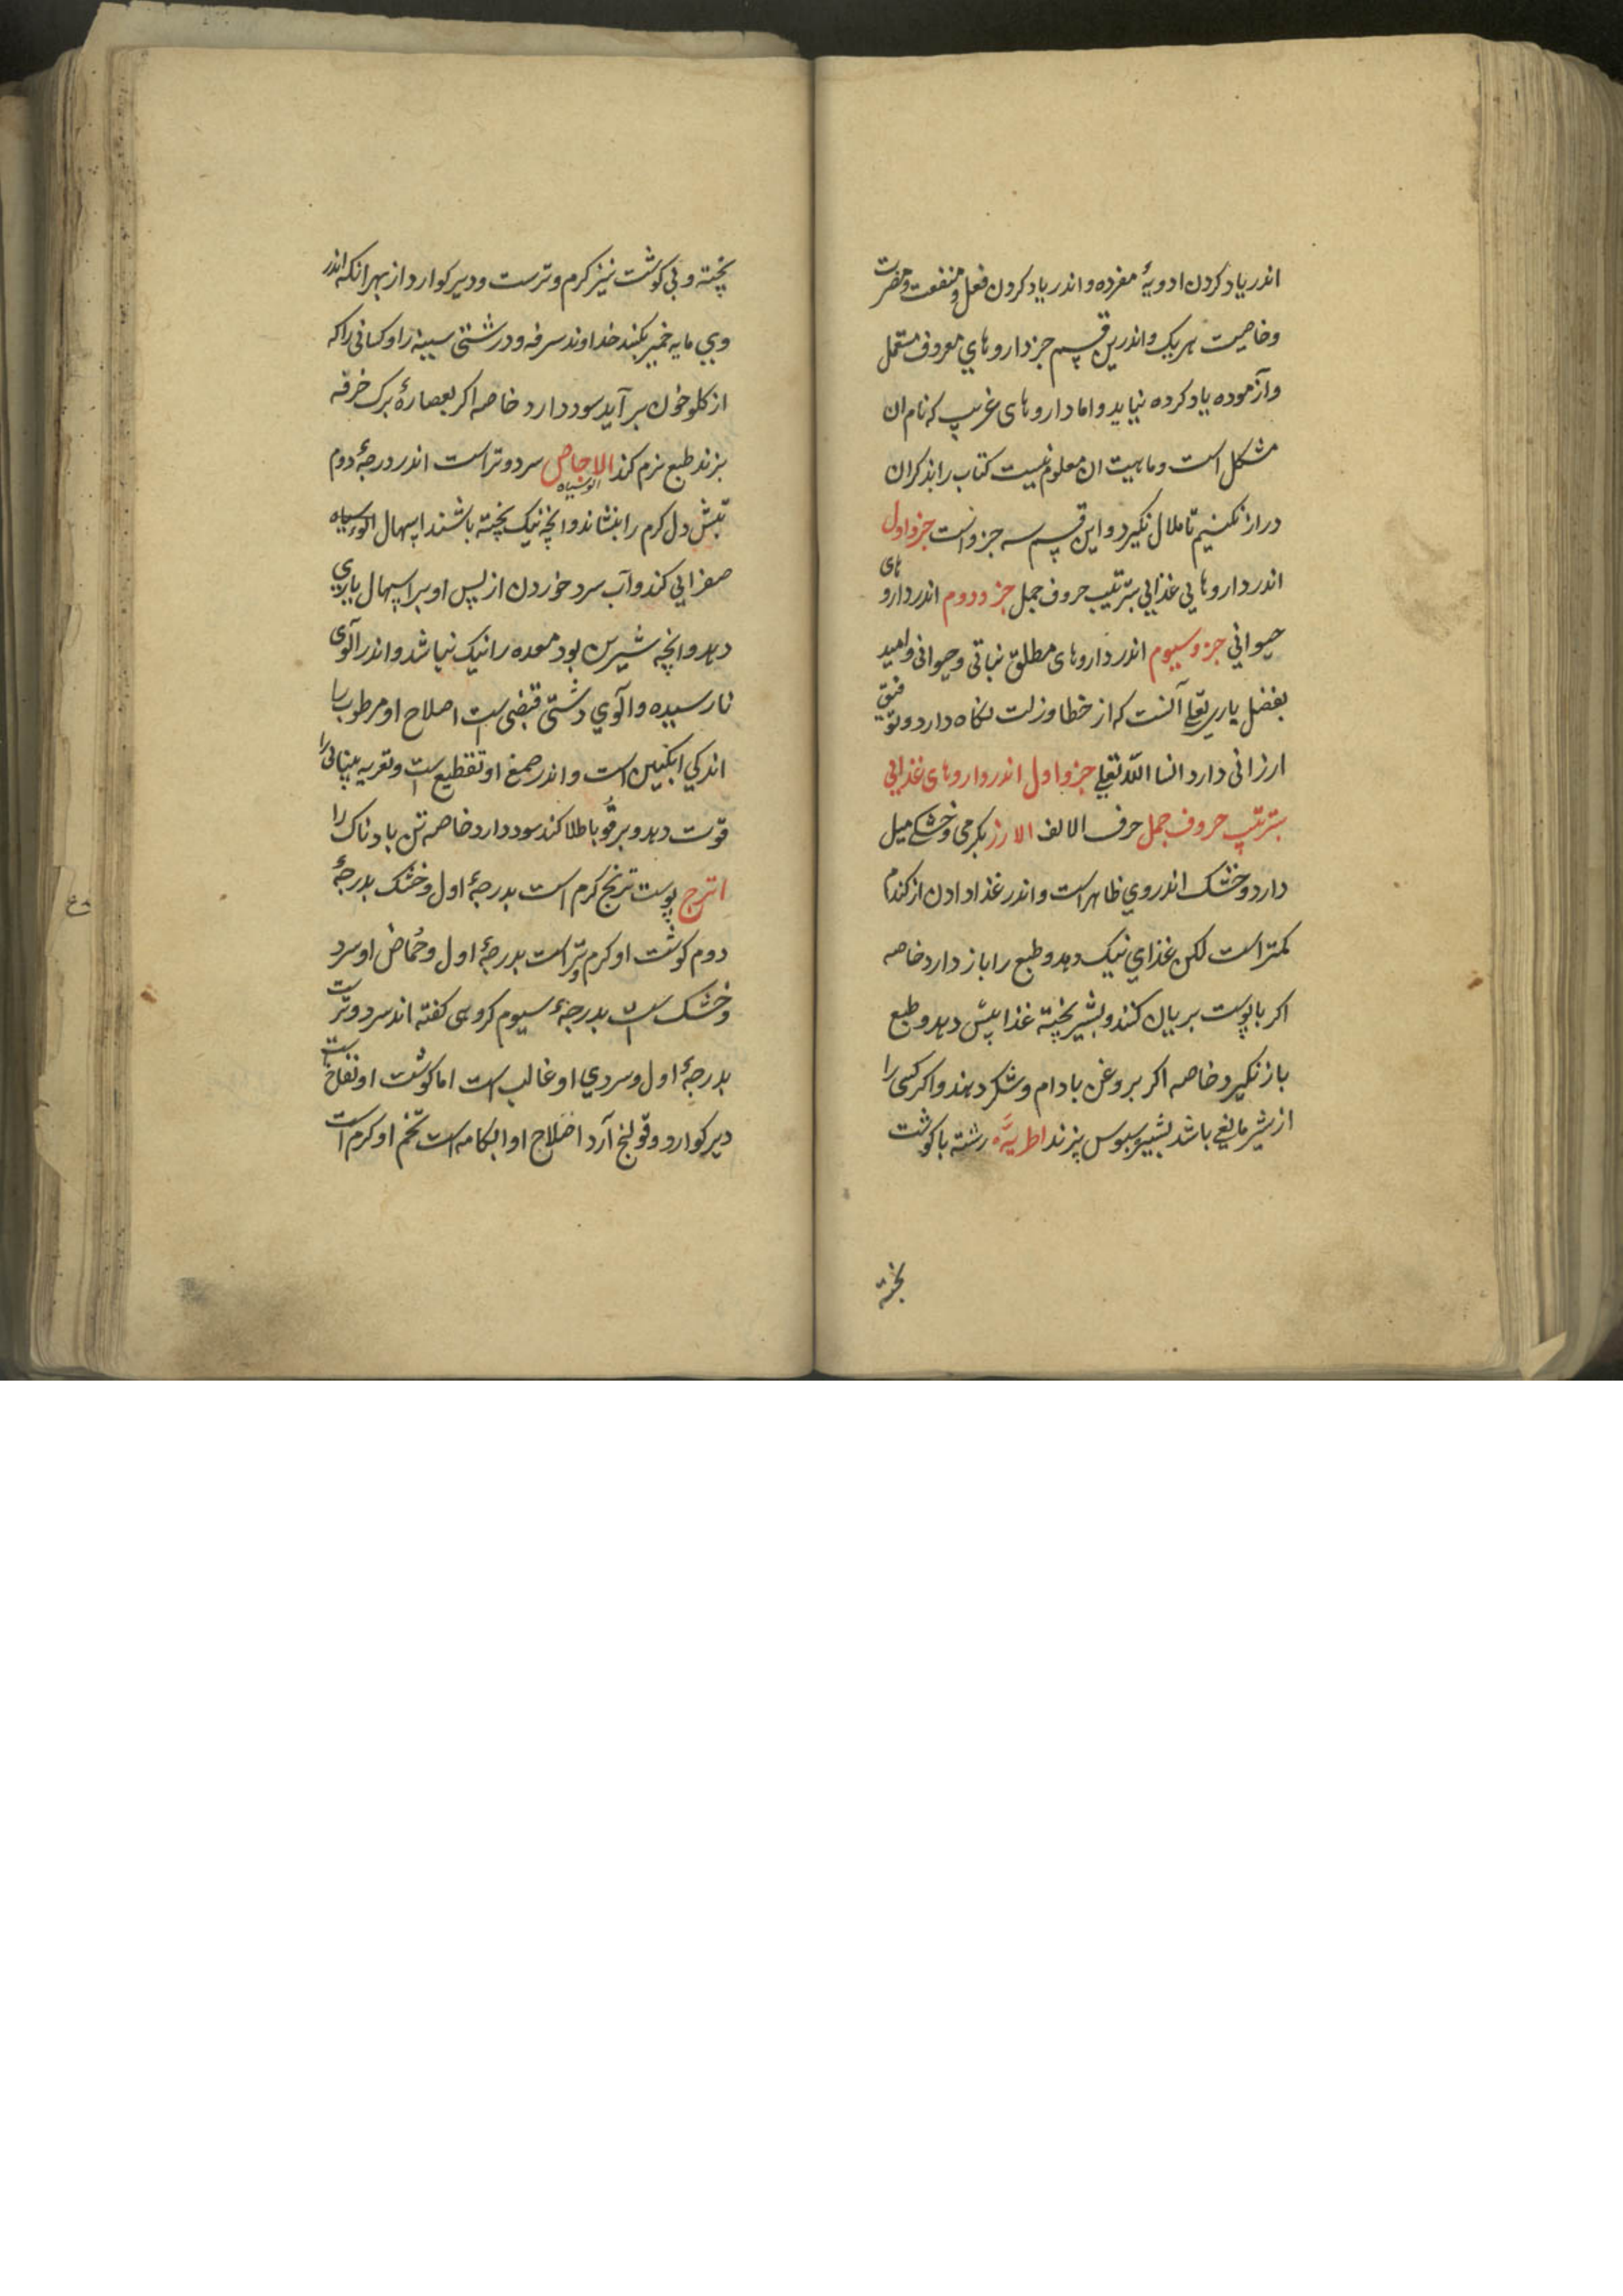 اندر یاد کردن ادویهٔ مفرده و اندر یاد کردن فعل و منفعت و مضرت
و خاصیت هر یک و اندرین قسم جز داروهای معروف مستعمل
و آزموده یاد کرده نیاید و اما داروهای غریب که نام ان
مشکل است و ماهیت ان معلوم نیست کتاب را بذکر ان
دراز نکنیم تا ملال نکیرد و این قسم سه جزو است جزو اول
اندر داروهایی غذایی بترتیب حروف جمل جزو دوم اندر داروهای
حیوانی جزو سیوم اندر داروهای مطلق نباتی و حیوانی و امید
بفضل باری تعلی آنست که از خطا و زلت نکاه دارد و توفیق
ارزانی دارد انشا الله تعلی جزو اول اندر داروهای غذایی
بترتیب حروف جمل حرف الالف الارز بکرمی و خشکی میل
دارد و خشک اندر وی ظاهر است و اندر غذا دادن از کندم
کمتر است لکن غذای نیک دهد و طبع را باز دارد خاصه
اکر با پوست بریان کنند و بشیر پخته غذا بیش دهد و طبع
باز نکیرد خاصه اکر بروغن بادام و شکر دهند و اکر کسی را
از شیر مانعی باشد بشیر سبوس پزند اطریه رشته با کوشت
پخته
پخته و بی کوشت نیز کرم و ترست و دیر کوارد از بهر انکه اندر
وی مایه خمیر نکنند خداوند سرفه و درشتی سینه را و کسانی را که
از کلو خون بر آید سود دارد خاصه اکر بعصارهٔ برک خرفه
بزند طبع نرم کند الاجاص سرد و تر است اندر درجهٔ دوم
الو سیاه
تبش دل کرم را بنشاند و انچه نیک پخته باشند اسهال الوء سیاه
صفرایی کند و آب سرد خوردن از پس او بر اسهال یاری
دهد و انچه شیرین بود معده را نیک نباشد و اندر آلوی
نارسیده و آلوی دشتی قبضی است اصلاح او مرطوب را
اندکی انکبین است و اندر صمغ او تقطیع است و تغریه بینایی را
قوت دهد و بر قوبا طلا کنند سود دارد خاصه تن بادناک را
اترج پوست ترنج کرم است بدرجهٔ اول و خشک بدرجهٔ
دوم کوشت او کرم و تر است بدرجهٔ اول و حُماض او سرد
و خشک است بدرجهٔ سیوم کروهی کفته اند سرد و تر است
بدرجهٔ اول و سردی او غالب است اما کوشت او نفاخ است
دیر کوارد و قولنج آرد اصلاح او ابکامه است تخم او کرم است